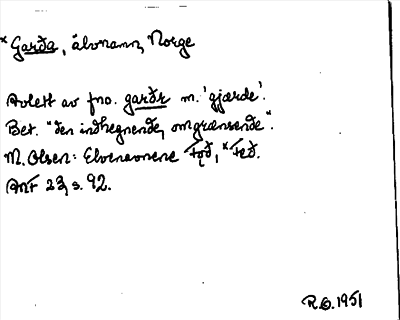 *Garða, älvnamn, Norge
Avlett av fno. garðr m. 'gjærde'.
Bet. "den indhegnende, omgrænsende".
M. Olsen: Elvenavnene Tǫð, *Teð.
ANF 23, s. 92.
R.O. 1951